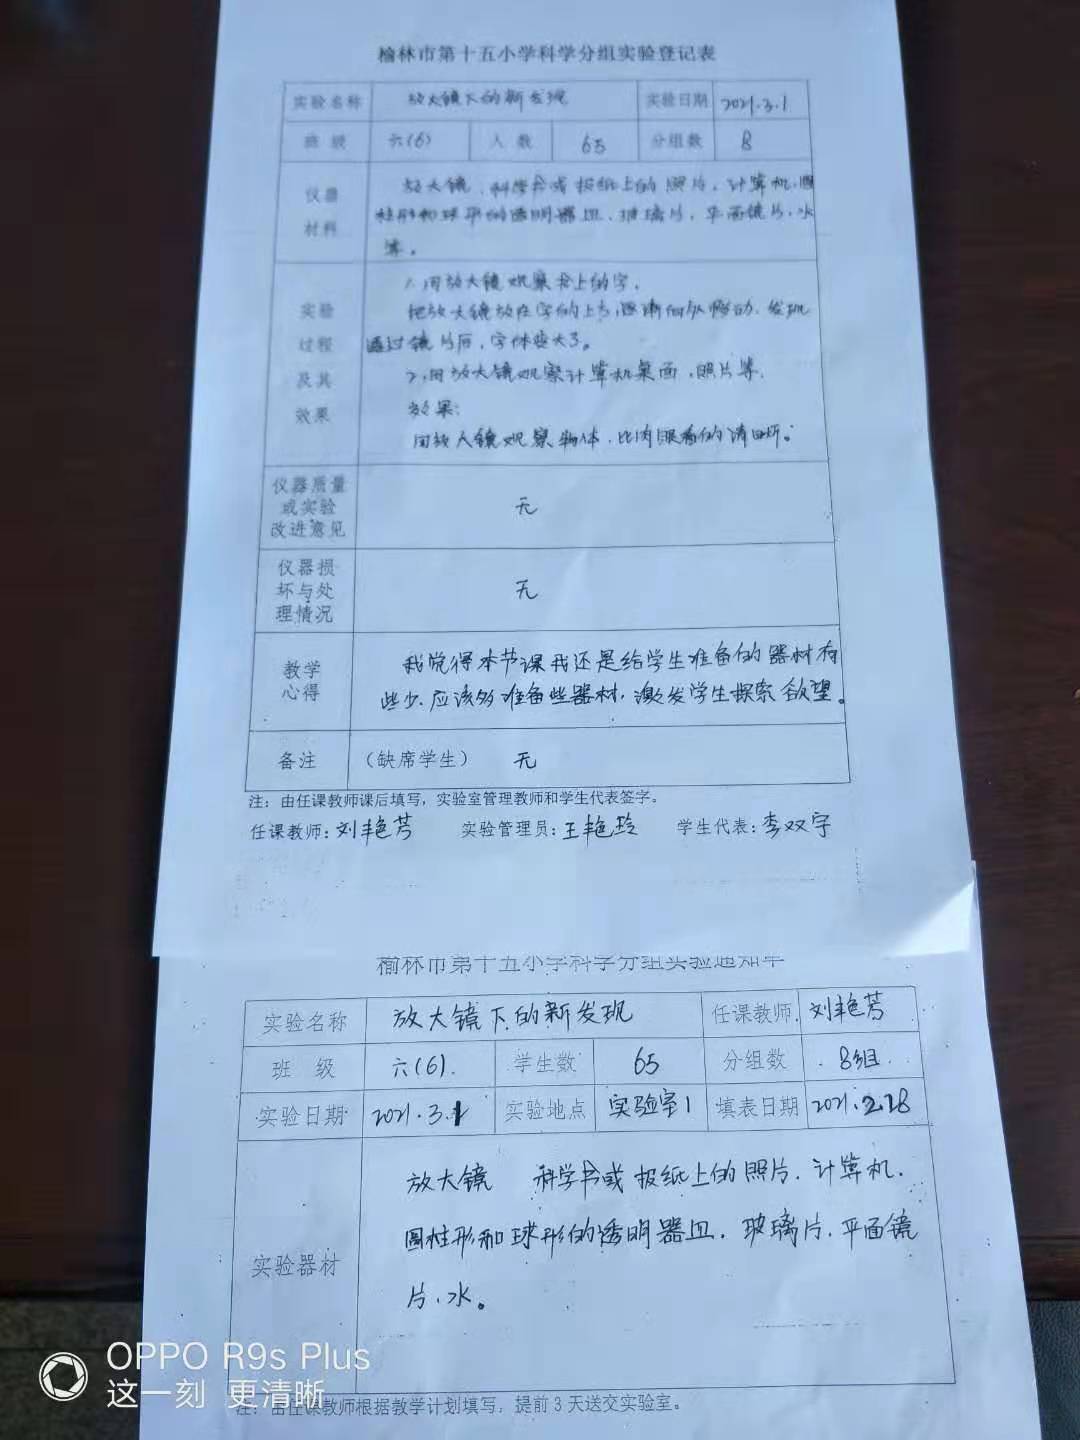 榆林市第十五小学科学分组实验登记表
实验名称 放大镜下的新发现 实验日期 2021.3.1
班 级 六(6) 人 数 65 分组数 8
仪器
材料
放大镜、科学书或报纸上的照片、计算机、圆
柱形和球形的透明器皿、玻璃片、平面镜片、水
等。
实验
过程
及其
效果
1、用放大镜观察书上的字,
把放大镜放在字的上方,逐渐向外移动、发现
通过镜片后,字体变大了。
2、用放大镜观察计算机桌面、照片等。
效果:
用放大镜观察物体,比肉眼看的清晰。
仪器质量
或实验
改进意见
无
仪器损
坏与处
理情况
无
教学
心得
我觉得本节课我还是给学生准备的器材有
些少.应该多准备些器材,激发学生探索欲望。
备注 (缺席学生) 无
注:由任课教师课后填写,实验室管理教师和学生代表签字。
任课教师:刘艳芳 实验管理员:王艳玲 学生代表:李双宇
榆林市第十五小学科学分组实验通知单
实验名称 放大镜下的新发现 任课教师 刘艳芳
班 级 六(6). 学生数 65 分组数 8组.
实验日期 2021.3.1 实验地点 实验室1 填表日期 2021.2.28
实验器材
放大镜 科学书或报纸上的照片、计算机、
圆柱形和球形的透明器皿、玻璃片、平面镜
片、水。
注:由任课教师根据教学计划填写,提前3天送交实验室。
OPPO R9s Plus
这一刻 更清晰